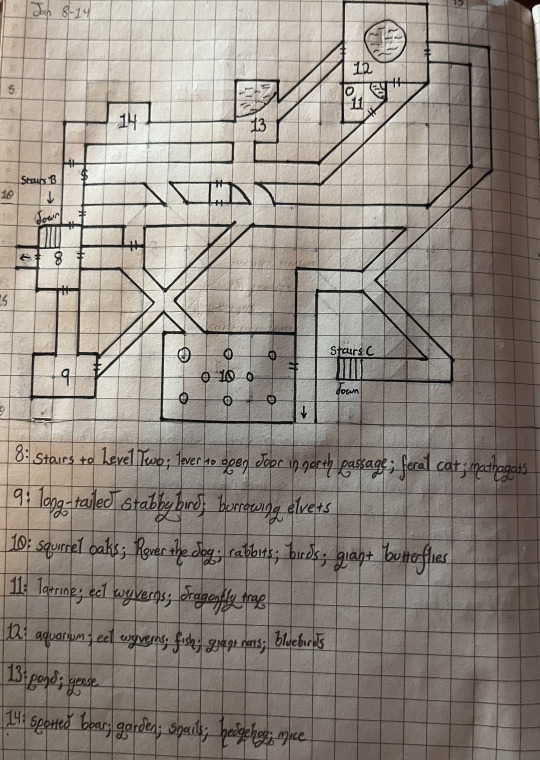 Jan 8-14
13
5
12
11
14
13
Stairs B
10
down
8
15
Stairs C
9
10
down
8: stairs to Level Two; lever to open door in north passage; feral cat; mathagats
9: long-tailed stabbybird; burrowing elvets
10: squirrel oaks; Rover the dog; rabbits; birds; giant butterflies
11: latrine; eel wyverns; dragonfly trap
12: aquarium; eel wyverns; fish; giant; bluebirds
13: pond; geese
14: spotted boar; garden; snails; hedgehog; mice